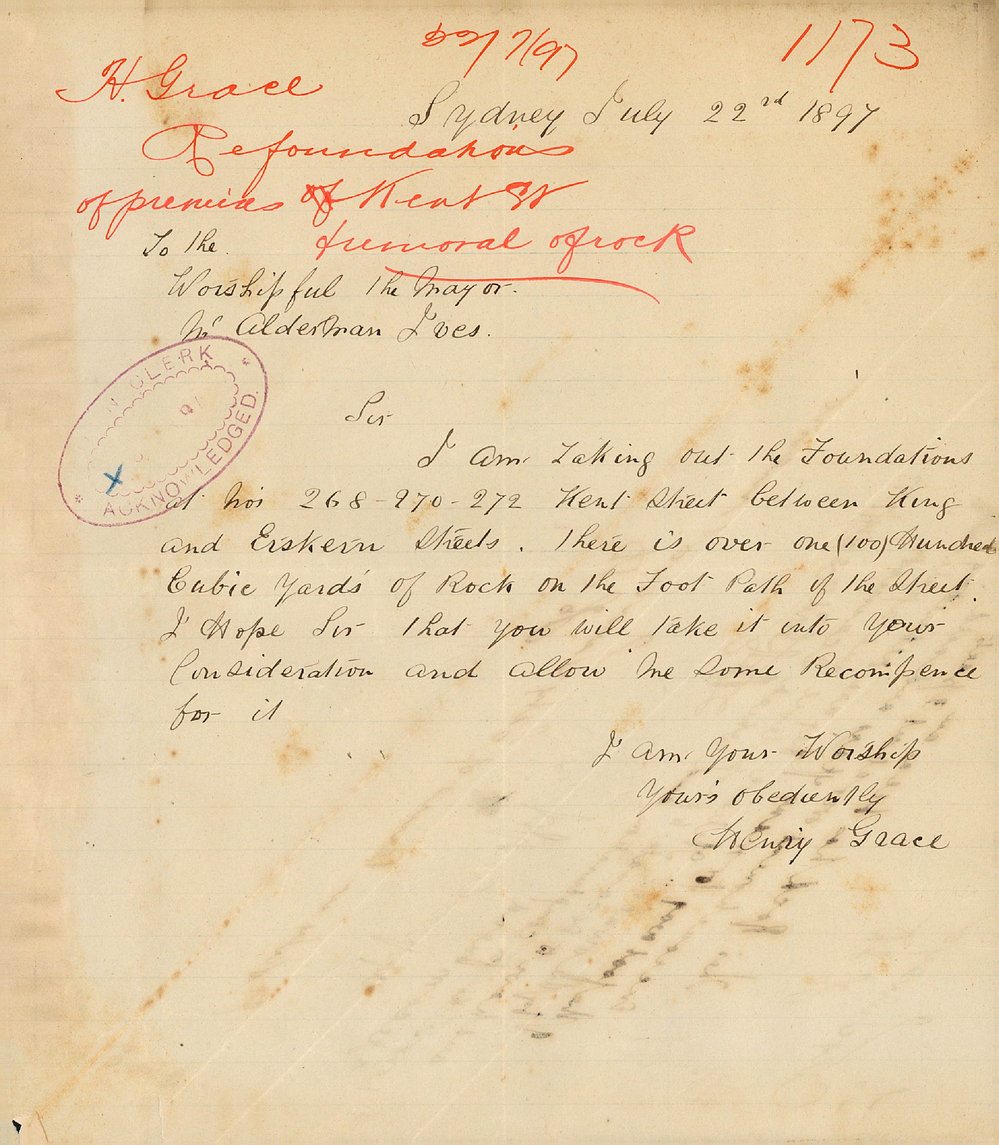 22/7/97
1173
H. Grace
Sydney July 22nd 1897
Re foundations
of premises Kent St
& removal of rock
To the
Worshipful the Mayor.
Mr Alderman Ives.
CLERK
ACKNOWLEDGED.
X
Sir
I am taking out the Foundations
at Nos 268-270-272 Kent Street between King
and Erskern Streets. There is over one (100) Hundred
Cubic Yards of Rock on the Foot Path of the Street.
I Hope Sir that you will take it into your
Consideration and allow me some Recompence
for it
I am Your Worship
Your's obediently
Henry Grace